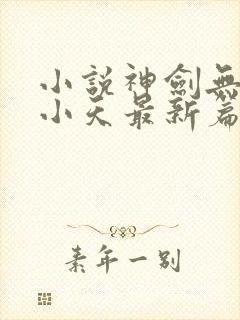 小說神劍無
小天最新篇
素年一别